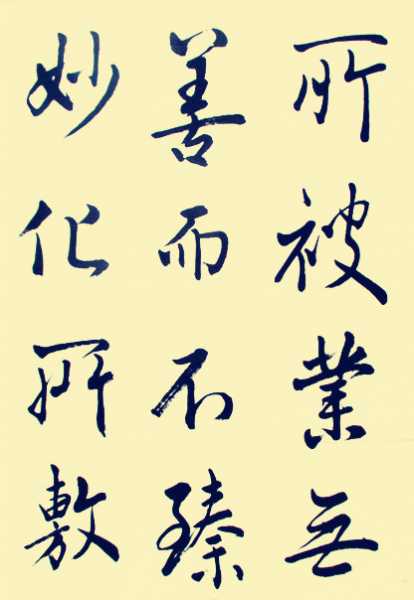 所被業無
善而不臻
妙化所敷